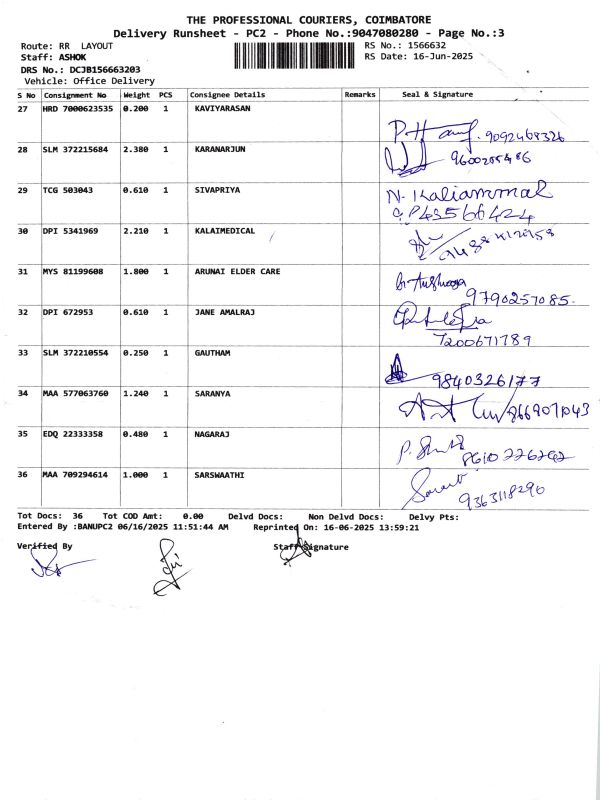 THE PROFESSIONAL COURIERS, COIMBATORE
Delivery Runsheet - PC2 - Phone No.:9047080280 - Page No.:3
Route: RR LAYOUT RS No.: 1566632
Staff: ASHOK RS Date: 16-Jun-2025
DRS No.: DCJB156663203
Vehicle: Office Delivery
S No Consignment No Weight PCS Consignee Details Remarks Seal & Signature
27 HRD 7000623535 0.200 1 KAVIYARASAN
9092468326
28 SLM 372215684 2.380 1 KARANARJUN
29 TCG 503043 0.610 1 SIVAPRIYA
N. Kaliammal
30 DPI 5341969 2.210 1 KALAIMEDICAL
31 MYS 81199608 1.800 1 ARUNAI ELDER CARE
9790257085
32 DPI 672953 0.610 1 JANE AMALRAJ
7200671789
33 SLM 372210554 0.250 1 GAUTHAM
9840326177
34 MAA 577063760 1.240 1 SARANYA
35 EDQ 22333358 0.480 1 NAGARAJ
36 MAA 709294614 1.000 1 SARSWAATHI
9363118290
Tot Docs: 36 Tot COD Amt: 0.00 Delvd Docs: Non Delvd Docs: Delvy Pts:
Entered By :BANUPC2 06/16/2025 11:51:44 AM Reprinted On: 16-06-2025 13:59:21
Verified By Staff Signature